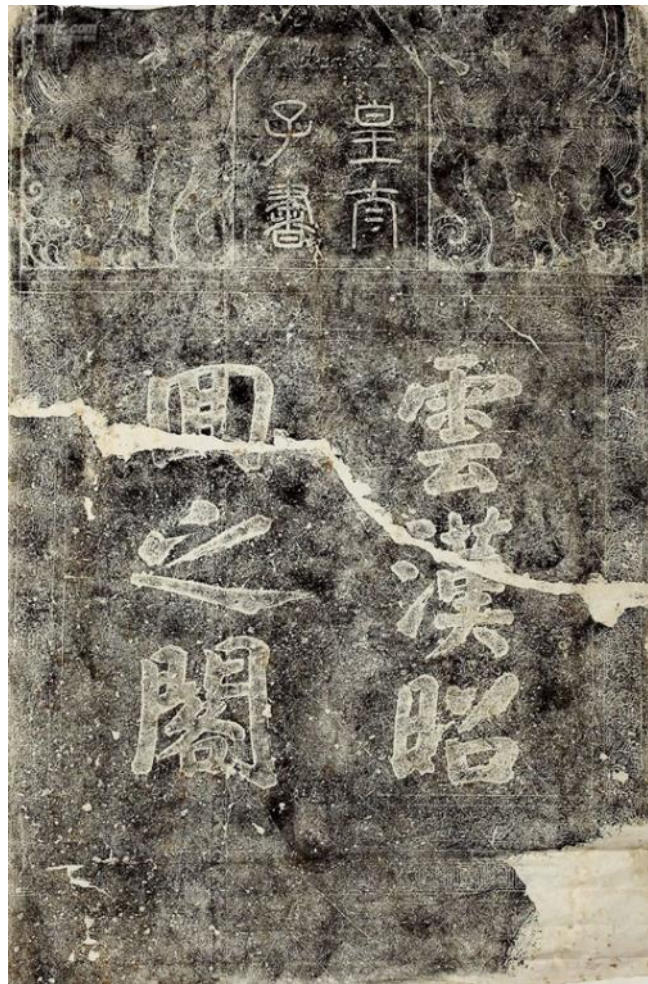 皇太
子書
雲漢昭
囘之閣